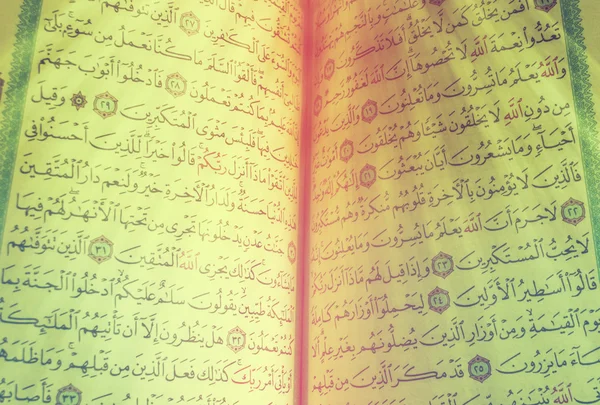 أَفَمَن يَخْلُقُ كَمَن لَّا يَخْلُقُ أَفَلَا تَذَكَّرُونَ
تَعُدُّوا۟ نِعْمَةَ ٱللَّهِ لَا تُحْصُوهَآ إِنَّ ٱللَّهَ لَغَفُورٌ رَّحِيمٌ
وَٱللَّهُ يَعْلَمُ مَا تُسِرُّونَ وَمَا تُعْلِنُونَ ١٩ وَٱلَّذِينَ يَدْعُونَ
مِن دُونِ ٱللَّهِ لَا يَخْلُقُونَ شَيْـًٔا وَهُمْ يُخْلَقُونَ ٢٠ أَمْوَٰتٌ
أَحْيَآءٍ وَمَا يَشْعُرُونَ أَيَّانَ يُبْعَثُونَ ٢١ إِلَٰهُكُمْ إِلَٰهٌ
فَٱلَّذِينَ لَا يُؤْمِنُونَ بِٱلْـَٔاخِرَةِ قُلُوبُهُم مُّنكِرَةٌ وَهُم مُّسْتَكْبِرُونَ
٢٢ لَا جَرَمَ أَنَّ ٱللَّهَ يَعْلَمُ مَا يُسِرُّونَ وَمَا يُعْلِنُونَ إِنَّهُۥ
لَا يُحِبُّ ٱلْمُسْتَكْبِرِينَ ٢٣ وَإِذَا قِيلَ لَهُم مَّاذَآ أَنزَلَ رَبُّكُمْ
قَالُوٓا۟ أَسَٰطِيرُ ٱلْأَوَّلِينَ ٢٤ لِيَحْمِلُوٓا۟ أَوْزَارَهُمْ كَامِلَةً
يَوْمَ ٱلْقِيَٰمَةِ وَمِنْ أَوْزَارِ ٱلَّذِينَ يُضِلُّونَهُم بِغَيْرِ عِلْمٍ أَلَا
سَآءَ مَا يَزِرُونَ ٢٥ قَدْ مَكَرَ ٱلَّذِينَ مِن قَبْلِهِمْ
تُشَٰٓقُّونَ فِيهِمْ قَالَ ٱلَّذِينَ
وَٱلسُّوٓءَ عَلَى ٱلْكَٰفِرِينَ ٢٧
أَنفُسِهِمْ فَأَلْقَوُا۟ ٱلسَّلَمَ مَا كُنَّا نَعْمَلُ مِن سُوٓءٍۭ بَلَىٰٓ
بِمَا كُنتُمْ تَعْمَلُونَ ٢٨ فَٱدْخُلُوٓا۟ أَبْوَٰبَ جَهَنَّمَ
خَٰلِدِينَ فِيهَا فَلَبِئْسَ مَثْوَى ٱلْمُتَكَبِّرِينَ ٢٩ ۞ وَقِيلَ
لِلَّذِينَ ٱتَّقَوْا۟ مَاذَآ أَنزَلَ رَبُّكُمْ قَالُوا۟ خَيْرًا لِّلَّذِينَ أَحْسَنُوا۟ فِى
هَٰذِهِ ٱلدُّنْيَا حَسَنَةٌ وَلَدَارُ ٱلْـَٔاخِرَةِ خَيْرٌ وَلَنِعْمَ دَارُ ٱلْمُتَّقِينَ
جَنَّٰتُ عَدْنٍ يَدْخُلُونَهَا تَجْرِى مِن تَحْتِهَا ٱلْأَنْهَٰرُ لَهُمْ فِيهَا
مَا يَشَآءُونَ كَذَٰلِكَ يَجْزِى ٱللَّهُ ٱلْمُتَّقِينَ ٣١ ٱلَّذِينَ تَتَوَفَّىٰهُمُ
ٱلْمَلَٰٓئِكَةُ طَيِّبِينَ يَقُولُونَ سَلَٰمٌ عَلَيْكُمُ ٱدْخُلُوا۟ ٱلْجَنَّةَ بِمَا
كُنتُمْ تَعْمَلُونَ ٣٢ هَلْ يَنظُرُونَ إِلَّآ أَن تَأْتِيَهُمُ ٱلْمَلَٰٓئِكَةُ
أَوْ يَأْتِىَ أَمْرُ رَبِّكَ كَذَٰلِكَ فَعَلَ ٱلَّذِينَ مِن قَبْلِهِمْ وَمَا ظَلَمَهُمُ
٣٣ فَأَصَابَهُمْ